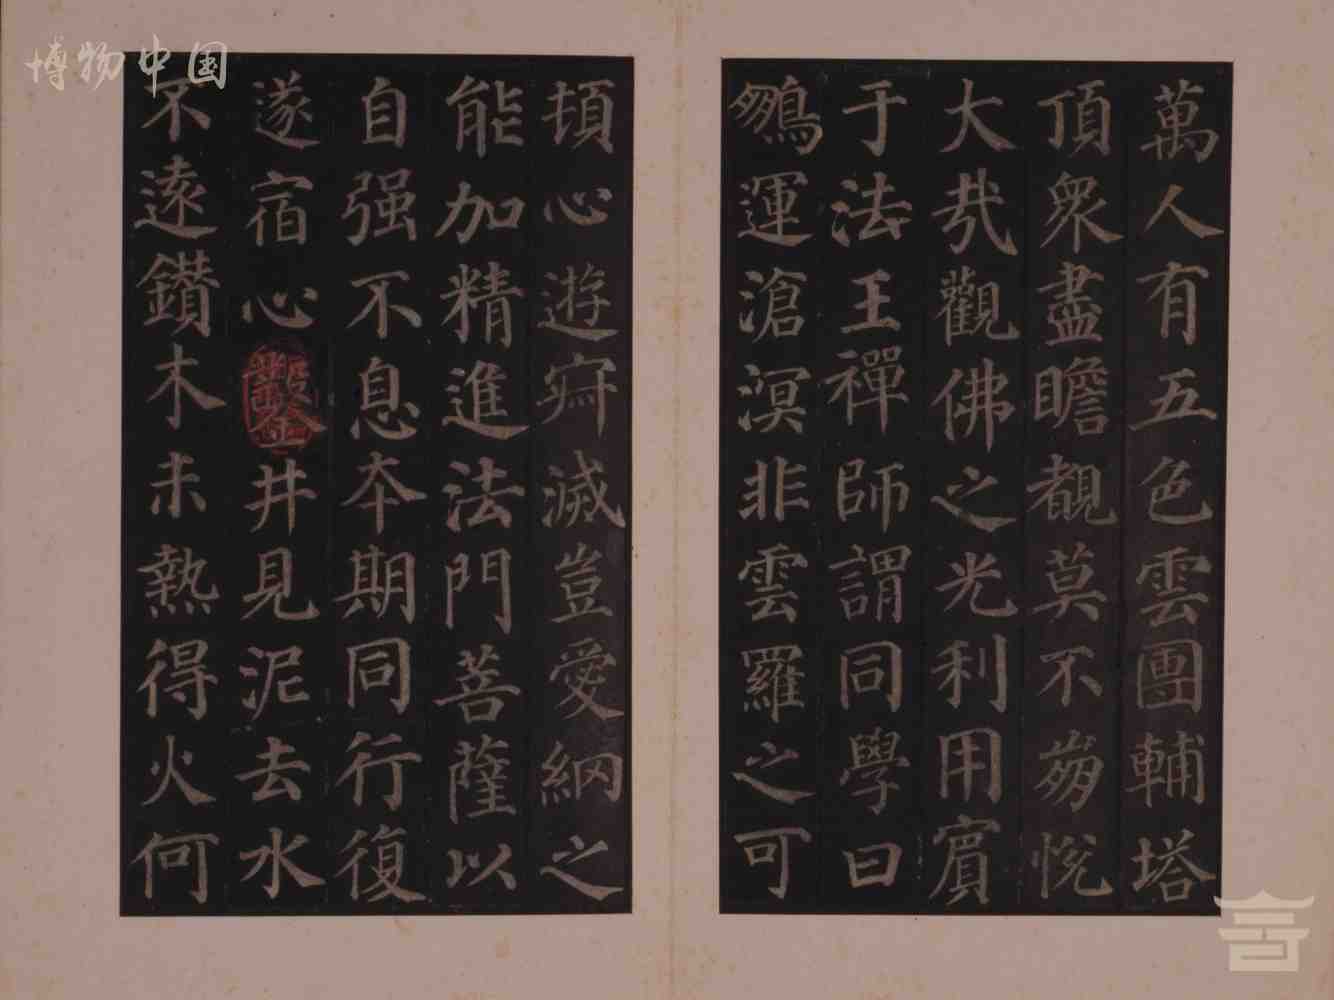 博物中国
萬人有五色雲團輔塔
頂衆盡瞻覩莫不㛃悅
大㢤觀佛之光利用賔
于法王禪師謂同學曰
鵷運滄溟非雲羅之可
頓心遊寂滅豈愛網之
能加精進法門菩薩以
自强不息夲期同行復
遂宿心鑿井見泥去水
不遠鑽木未熱得火何